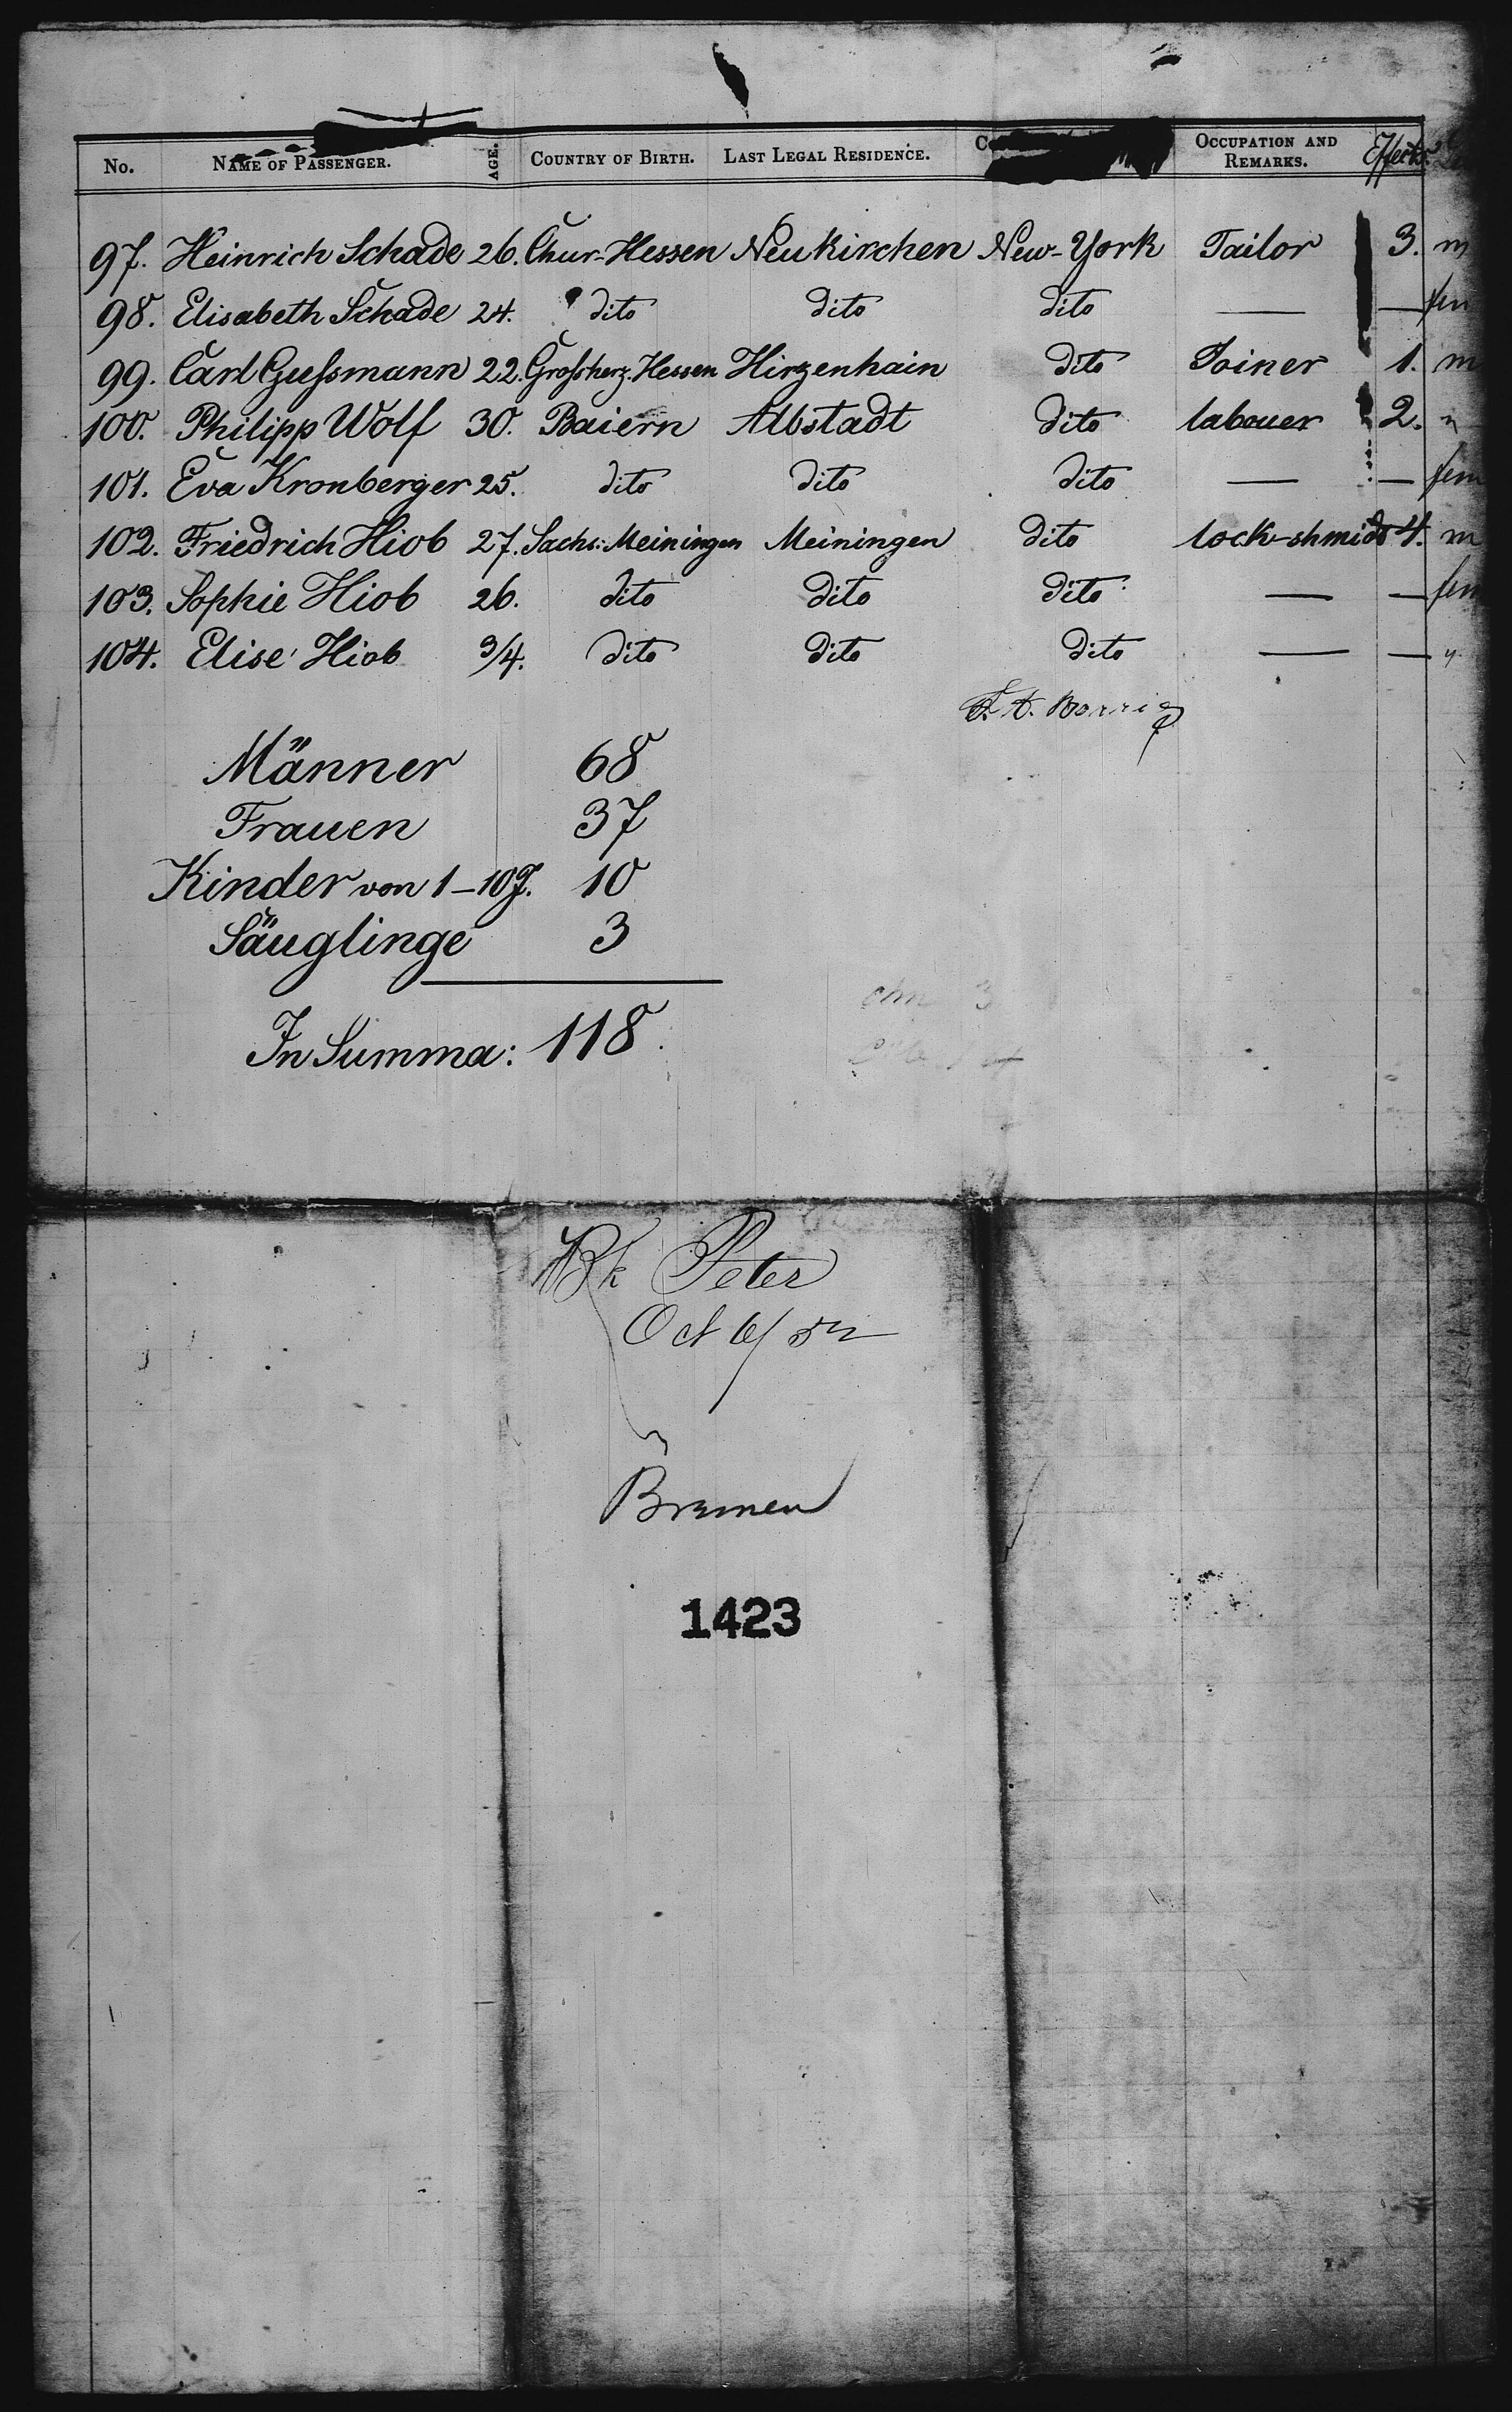 No. NAME OF PASSENGER. AGE. COUNTRY OF BIRTH. LAST LEGAL RESIDENCE. OCCUPATION AND REMARKS. Effects.
97. Heinrich Schade 26. Chur-Hessen Neukirchen New-York Tailor 3. m
98. Elisabeth Schade 24. dito dito dito — — fem
99. Carl Gußmann 22. Großherz. Hessen Hirzenhain dito Joiner 1. m
100. Philipp Wolf 30. Baiern Albstadt dito labouer 2.
101. Eva Kronberger 25. dito dito dito — — fem
102. Friedrich Hiob 27. Sachs: Meiningen Meiningen dito lock-shmidt 4. m
103. Sophie Hiob 26. dito dito dito — — fem
104. Elise Hiob 3/4. dito dito dito — — "
Männer 68
Frauen 37
Kinder von 1-10 J. 10
Säuglinge 3
In Summa: 118.
Bk Peter
Oct 6/52
Bremen
1423